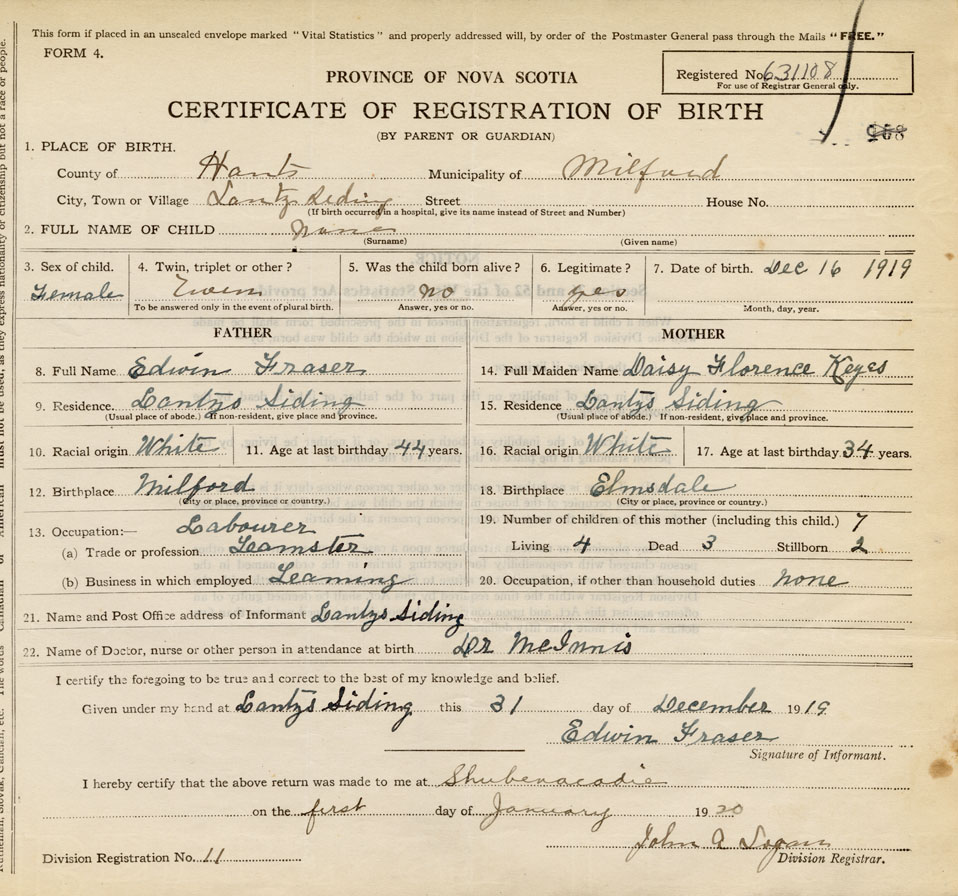 This form if placed in an unsealed envelope marked "Vital Statistics" and properly addressed will, by order of the Postmaster General pass through the Mails "FREE."
FORM 4.
PROVINCE OF NOVA SCOTIA
Registered No. 631108
For use of Registrar General only.
CERTIFICATE OF REGISTRATION OF BIRTH
(BY PARENT OR GUARDIAN)
968
1. PLACE OF BIRTH.
County of Hants Municipality of Milford
City, Town or Village Lantz Siding Street House No.
(If birth occurred in a hospital, give its name instead of Street and Number)
2. FULL NAME OF CHILD none
(Surname) (Given name)
3. Sex of child. 4. Twin, triplet or other? 5. Was the child born alive? 6. Legitimate? 7. Date of birth. Dec 16 1919
Female Twin no yes
To be answered only in the event of plural birth. Answer, yes or no. Answer, yes or no. Month, day, year.
FATHER MOTHER
8. Full Name Edwin Fraser 14. Full Maiden Name Daisy Florence Keyes
9. Residence. Lantzs Siding 15. Residence Lantzs Siding
(Usual place of abode.) If non-resident, give place and province. (Usual place of abode.) If non-resident, give place and province.
10. Racial origin White 11. Age at last birthday 44 years. 16. Racial origin White 17. Age at last birthday 34 years.
12. Birthplace Milford 18. Birthplace Elmsdale
(City or place, province or country.) (City or place, province or country.)
13. Occupation:— Labourer 19. Number of children of this mother (including this child.) 7
(a) Trade or profession Teamster Living 4 Dead 3 Stillborn 2
(b) Business in which employed Teaming 20. Occupation, if other than household duties none
21. Name and Post Office address of Informant Lantzs Siding
22. Name of Doctor, nurse or other person in attendance at birth Dr McInnis
I certify the foregoing to be true and correct to the best of my knowledge and belief.
Given under my hand at Lantzs Siding this 31 day of December 1919
Edwin Fraser
Signature of Informant.
I hereby certify that the above return was made to me at Shubenacadie
on the first day of January 1920
John A Logan
Division Registration No. 11 Division Registrar.